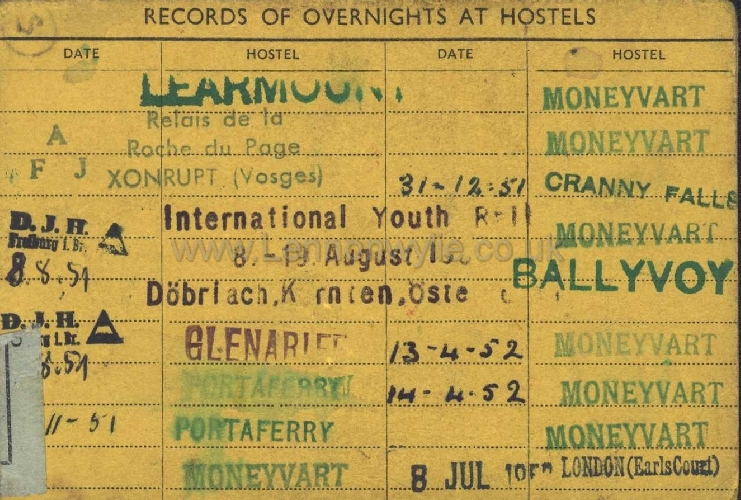 RECORDS OF OVERNIGHTS AT HOSTELS
DATE HOSTEL DATE HOSTEL
LEARMOUNT
MONEYVART
Relais de la
A
MONEYVART
Roche du Page
F J
XONRUPT (Vosges)
31-12-51
CRANNY FALLS
D. J. H.
8.8.51
International Youth
MONEYVART
8.-19 August
www.Lennonwylie.co.uk
BALLYVOY
Döbriach,
D. J. H.
8.51
GLENARIFF
13-4-52
MONEYVART
PORTAFERRY
14-4-52
MONEYVART
11-51
PORTAFERRY
MONEYVART
MONEYVART
8 JUL
LONDON (Earls Court)